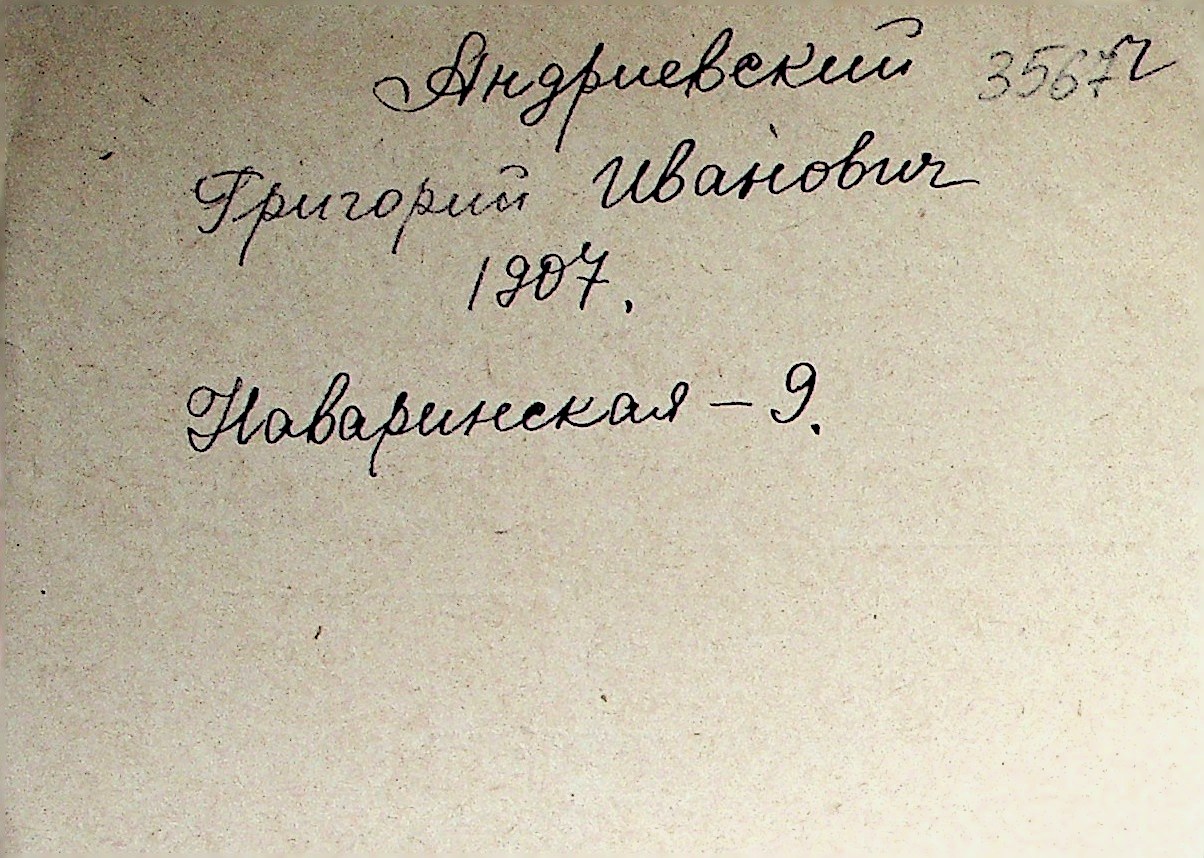 Андриевский 3567ч
Григорий Иванович
1907.
Наваринская - 9.